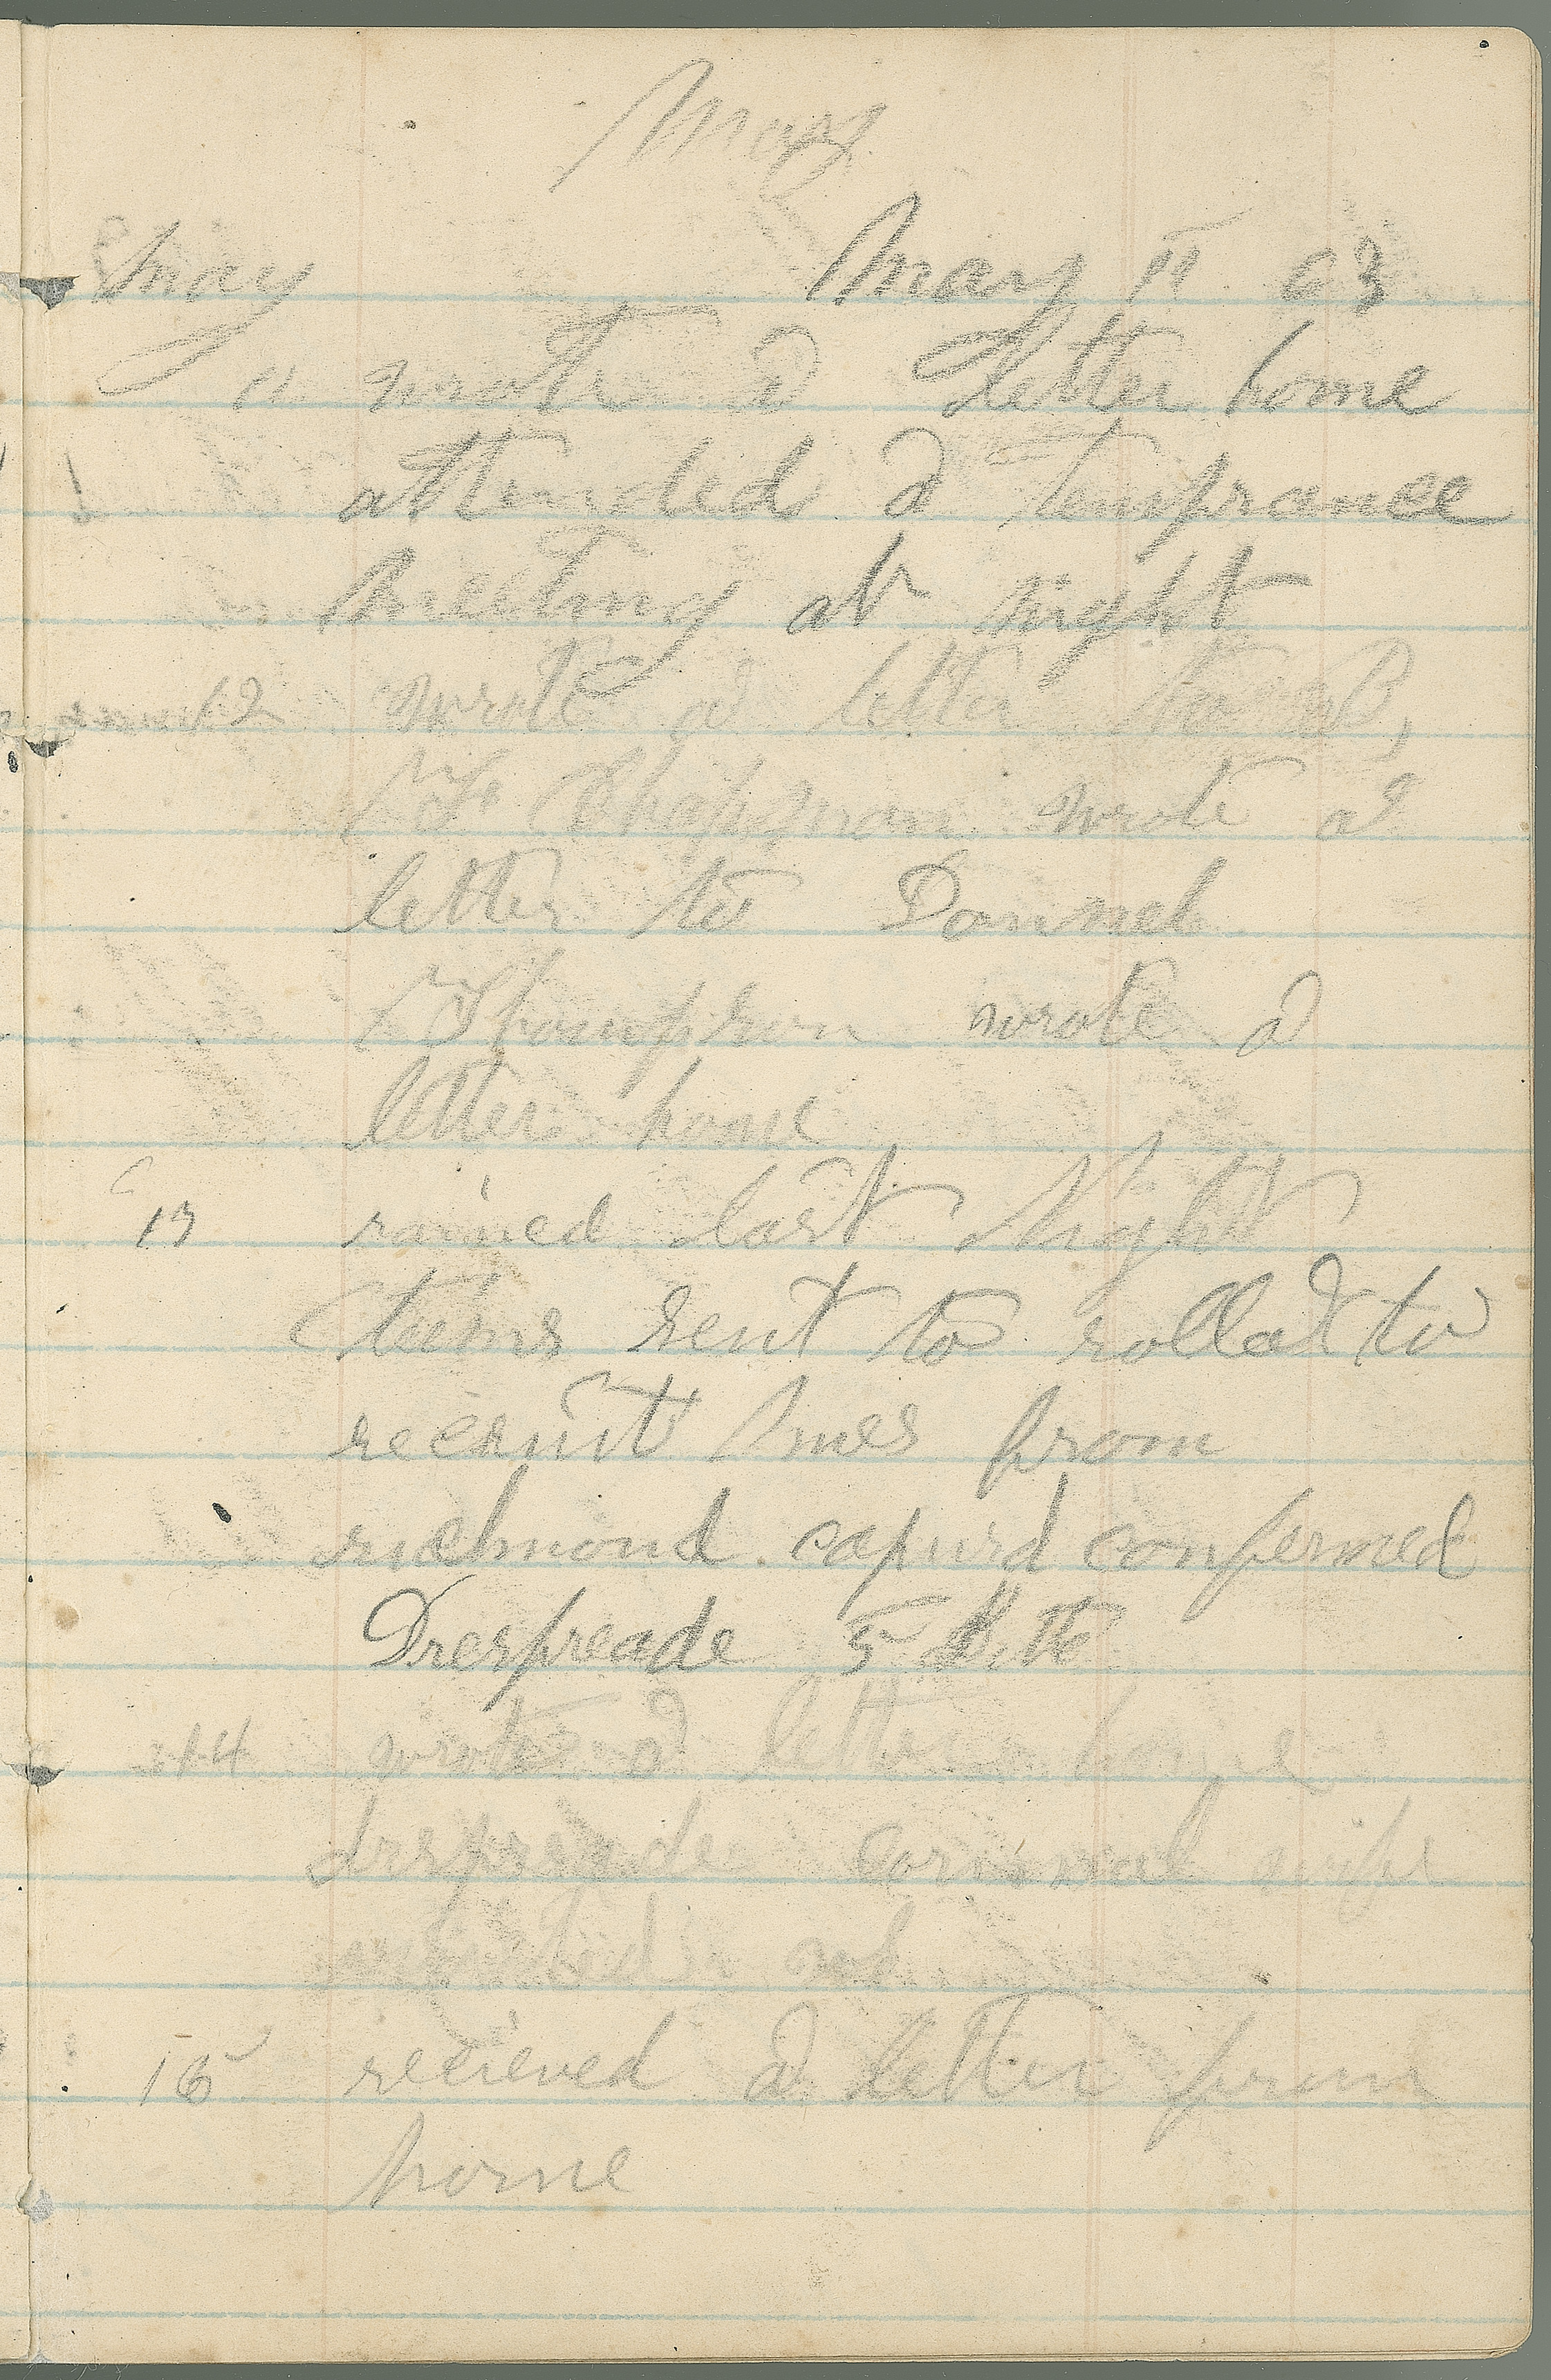 May
May May 11 63
11 wrote a letter home
attended a temprance
Meeting at night
12 wrote a letter to B,
F Chapman wrote a
letter to Danniel
Thompson wrote a
letter home
13 rained last Night
teems sent to rolla to
recruit from
richmond capurd confermed
Dresspreade 5
14 wrote a letter home
dresprade
15 recieved a letter from
home